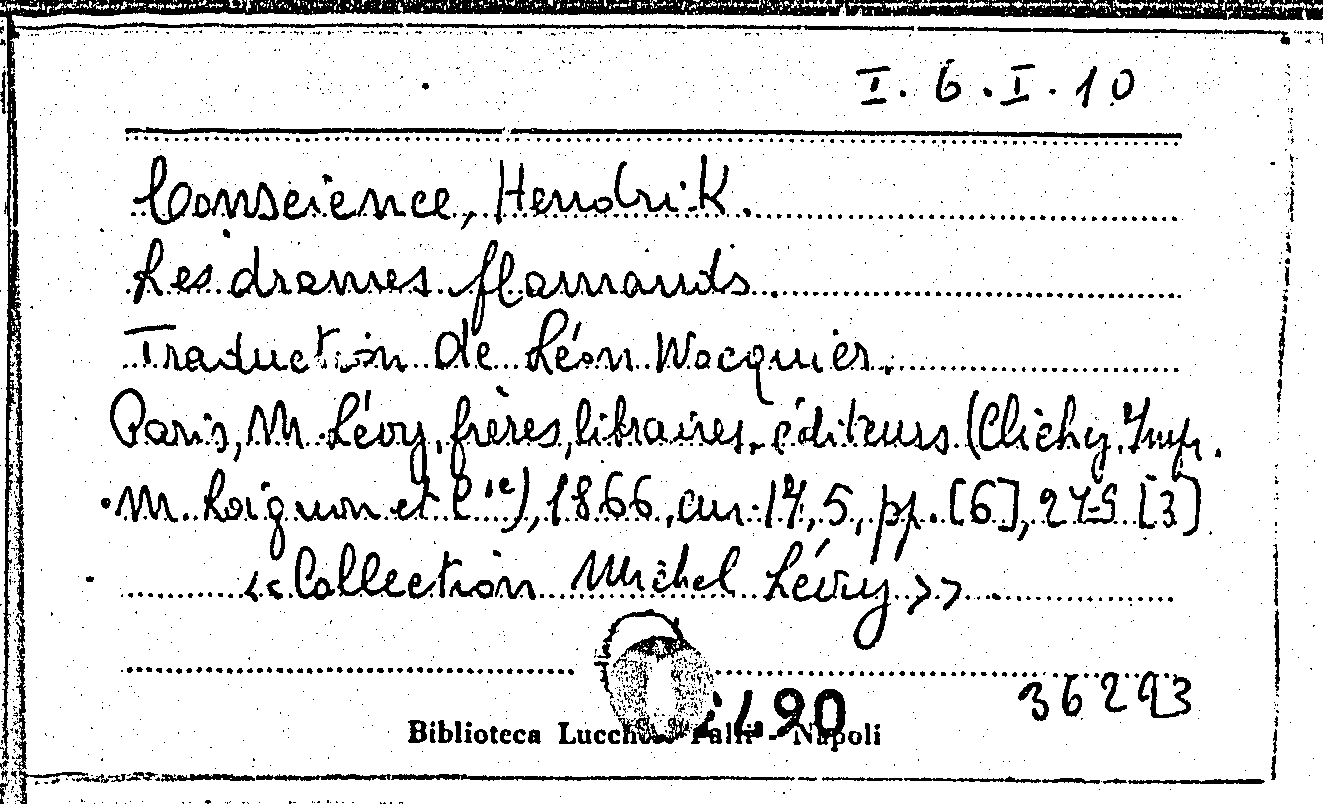 I. 6. I. 10
Conscience, Hendrik.
Les drames flamands.
Traduction de Léon Wocquier.
Paris, M. Lévy, frères, libraires, éditeurs (Clichy. Impr.
M. Loignon et C.ie), 1866, cm. 17,5, pp. [6], 275 [3]
«Collection Michel Lévy».
36293
Biblioteca Lucchesi Palli - Napoli